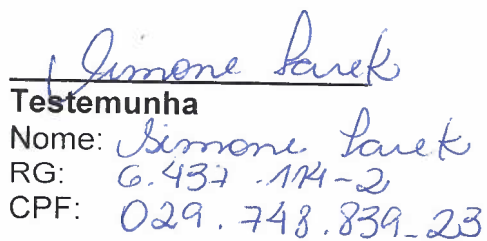 Simone Sarek
Testemunha
Nome: Simone Sarek
RG: 6.437.114-2
CPF: 029.748.839-23